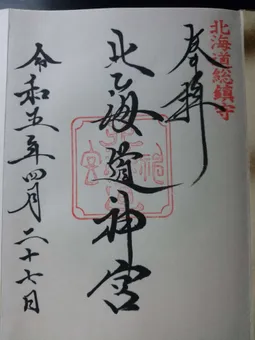 北海道総鎮守
奉拝
北海道神宮
令和五年四月二十七日